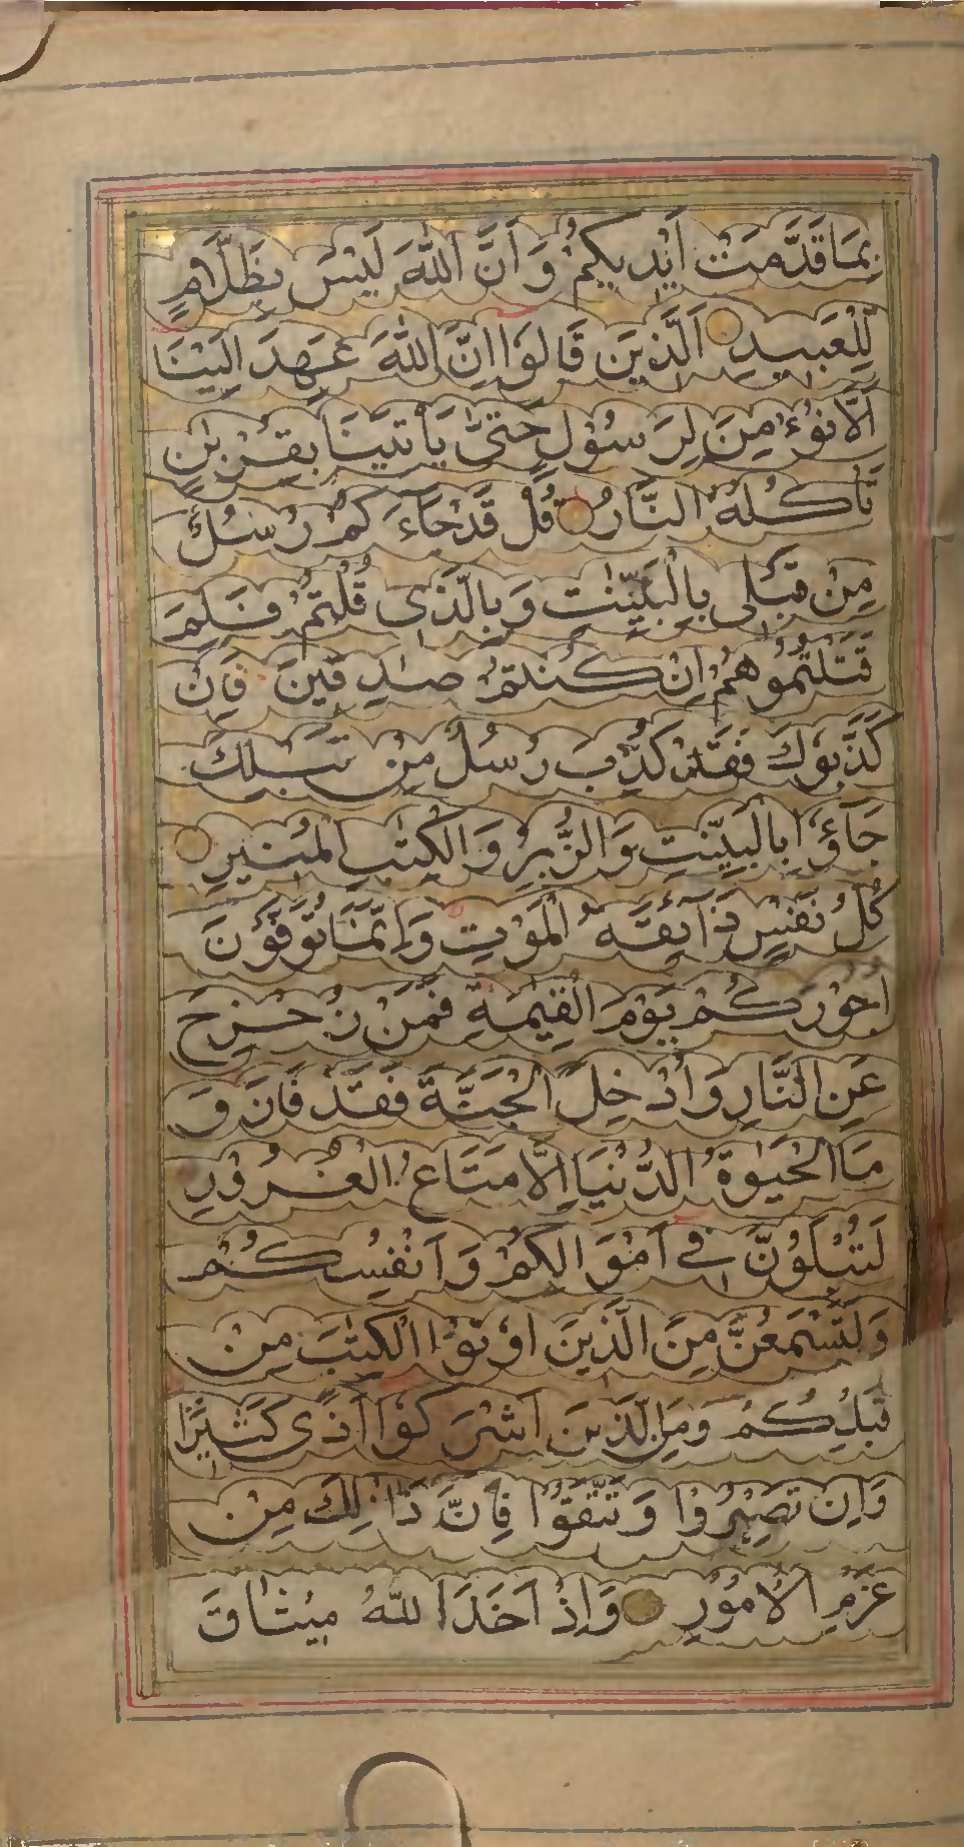 بِمَا قَدَّمَتْ اَيْدِيكُمْ وَ اَنَّ اللّٰهَ لَيْسَ بِظَلَّامٍ
لِّلْعَبِيدِ اَلَّذِينَ قَالُوا اِنَّ اللّٰهَ عَهِدَ اِلَيْنَا
اَلَّا نُؤْمِنَ لِرَسُوْلٍ حَتّٰى يَاْتِيَنَا بِقُرْبٰنٍ
تَاْكُلُهُ النَّارُ قُلْ قَدْ جَآءَ كُمْ رُسُلٌ
مِنْ قَبْلِى بِالْبَيِّنٰتِ وَ بِالَّذِى قُلْتُمْ فَلِمَ
قَتَلْتُمُوْهُمْ اِنْ كُنْتُمْ صٰدِقِينَ فَاِنْ
كَذَّبُوْكَ فَقَدْ كُذِّبَ رُسُلٌ مِنْ قَبْلِكَ
جَآؤُ ا بِالْبَيِّنٰتِ وَ الزُّبُرِ وَ الْكِتٰبِ الْمُنِيرِ
كُلُّ نَفْسٍ ذَآئِقَةُ الْمَوْتِ وَ اِنَّمَا تُوَفَّوْنَ
اُجُوْرَكُمْ يَوْمَ الْقِيٰمَةِ فَمَنْ زُحْزِحَ
عَنِ النَّارِ وَ اُدْخِلَ الْجَنَّةَ فَقَدْ فَازَ وَ
مَا الْحَيٰوةُ الدُّنْيَا اِلَّا مَتَاعُ الْغُرُوْرِ
لَتُبْلَوُنَّ فِى اَمْوَالِكُمْ وَ اَنْفُسِكُمْ
وَ لَتَسْمَعُنَّ مِنَ الَّذِينَ اُوْتُوْا الْكِتٰبَ مِنْ
قَبْلِكُمْ وَ مِنَ الَّذِينَ اَشْرَكُوْا اَذًى كَثِيرًا
وَ اِنْ تَصْبِرُوْا وَ تَتَّقُوْا فَاِنَّ ذَالِكَ مِنْ
عَزْمِ الْاُمُوْرِ وَ اِذْ اَخَذَ اللّٰهُ مِيْثَاقَ